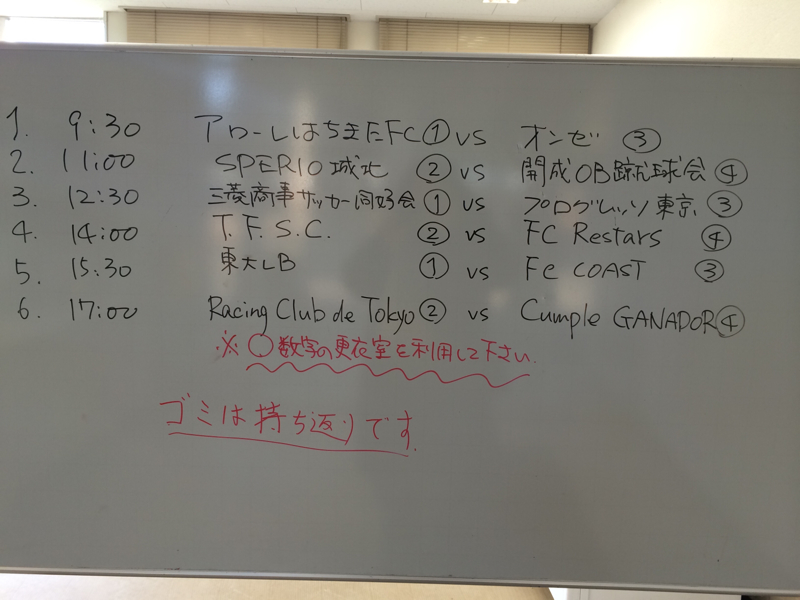 1. 9:30 アローレはちきたFC① vs オンゼ ③
2. 11:00 SPERIO城北 ② vs 開成OB蹴球会④
3. 12:30 三菱商事サッカー同好会① vs プログレッソ東京③
4. 14:00 T.F.S.C. ② vs FC Restars ④
5. 15:30 東大LB ① vs Fe COAST ③
6. 17:00 Racing Club de Tokyo② vs Cumple GANADOR④
※○数字の更衣室を利用して下さい.
ゴミは持ち返りです.